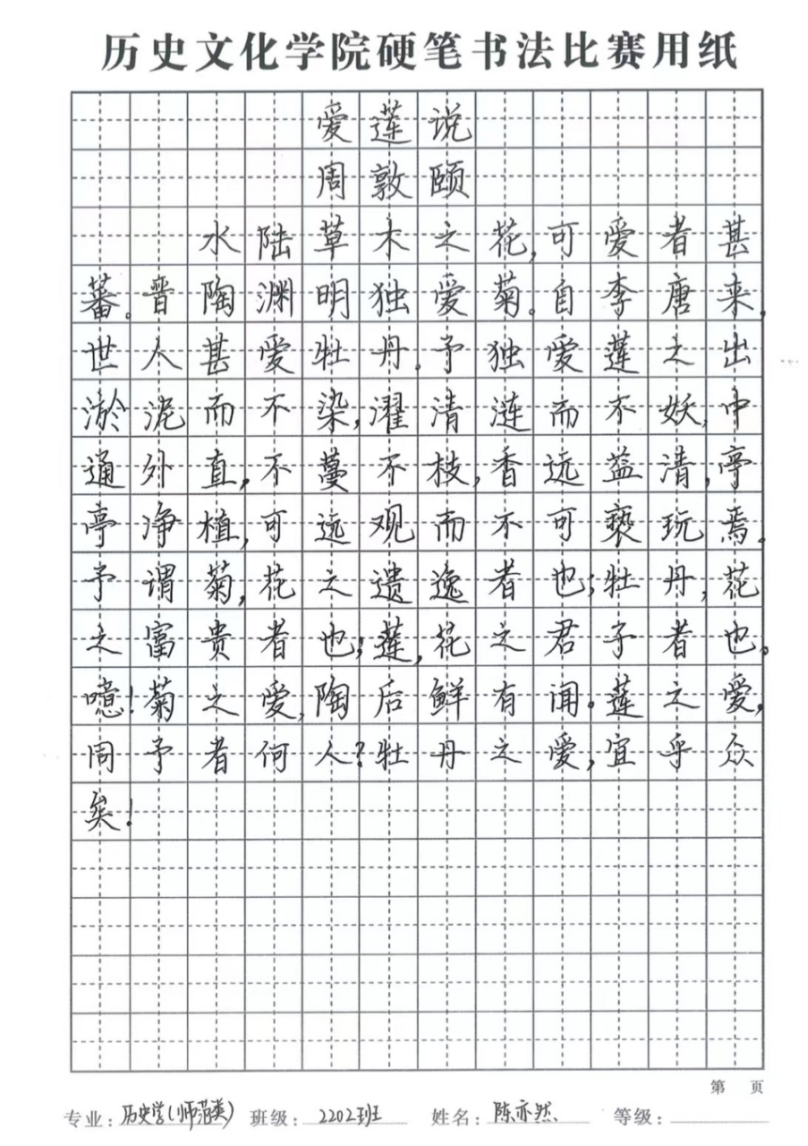 历史文化学院硬笔书法比赛用纸
爱莲说
周敦颐
水陆草木之花,可爱者甚
蕃。晋陶渊明独爱菊。自李唐来,
世人甚爱牡丹。予独爱莲之出
淤泥而不染,濯清涟而不妖,中
通外直,不蔓不枝,香远益清,亭
亭净植,可远观而不可亵玩焉。
予谓菊,花之遗逸者也;牡丹,花
之富贵者也;莲,花之君子者也。
噫!菊之爱,陶后鲜有闻。莲之爱,
同予者何人?牡丹之爱,宜乎众
矣!
第 页
专业:历史学(师范类) 班级:2202班 姓名:陈亦然 等级: